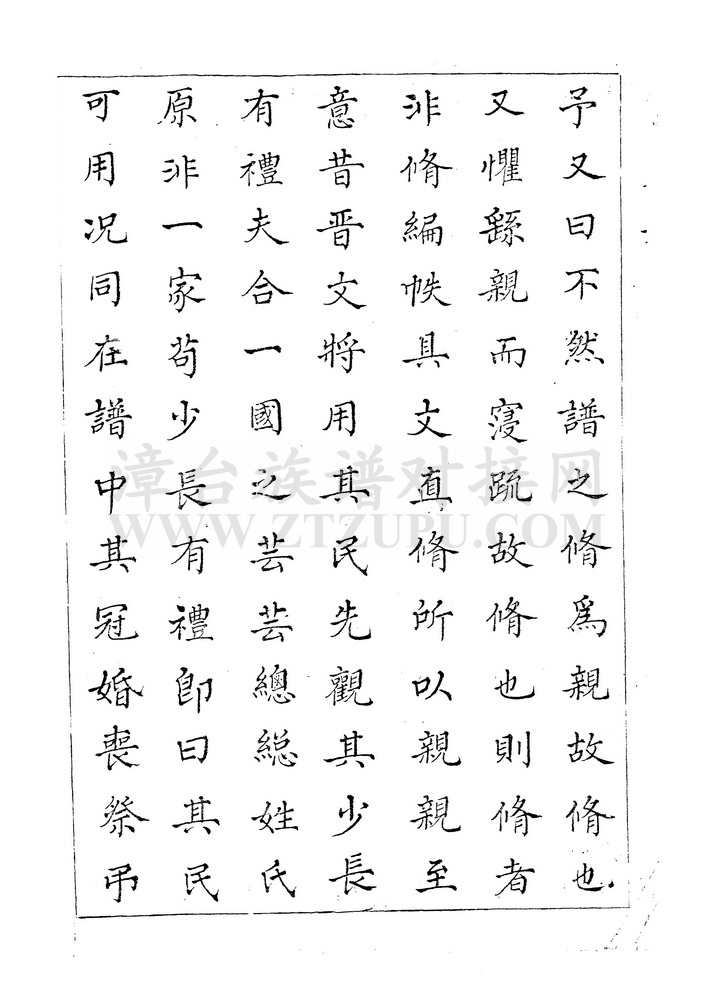 予又曰不然譜之脩為親故脩也
又懼繇親而寖疏故脩也則脩者
非脩編帙具文直脩所以親親至
意昔晋文將用其民先觀其少長
有禮夫合一國之芸芸總總姓氏
原非一家苟少長有禮即曰其民
可用况同在譜中其冠婚喪祭弔
漳台族谱对接网
WWW.ZTZUPU.COM